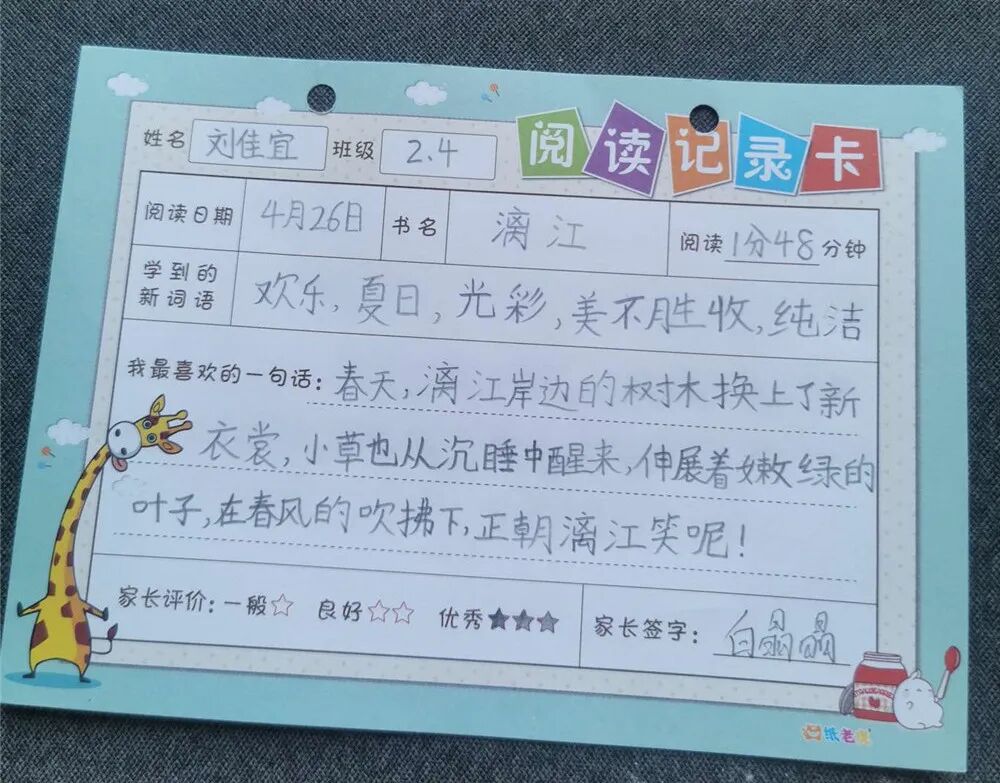 阅读记录卡
姓名 刘佳宜 班级 2.4
阅读日期 4月26日 书名 漓江 阅读1分48分钟
学到的
新词语
欢乐,夏日,光彩,美不胜收,纯洁
我最喜欢的一句话:春天,漓江岸边的树木换上了新
衣裳,小草也从沉睡中醒来,伸展着嫩绿的
叶子,在春风的吹拂下,正朝漓江笑呢!
家长评价:一般☆ 良好☆☆ 优秀★★★ 家长签字:白晶晶
纸老